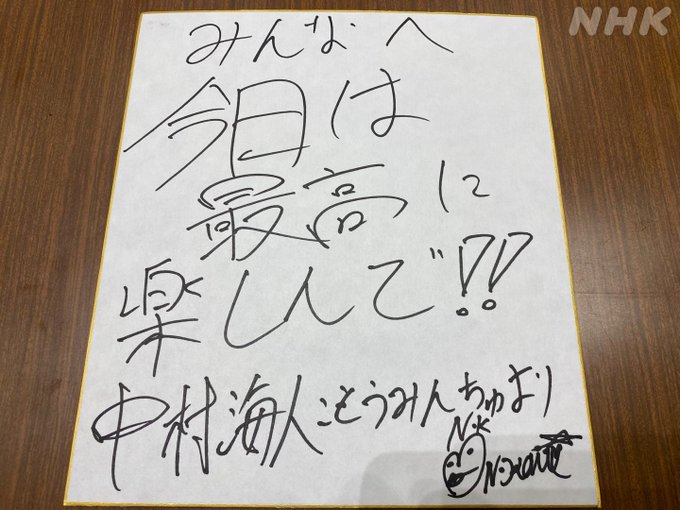 NHK
みんなへ
今日は
最高に
楽しんで!!
中村海人こともうみんちゅより
N.K